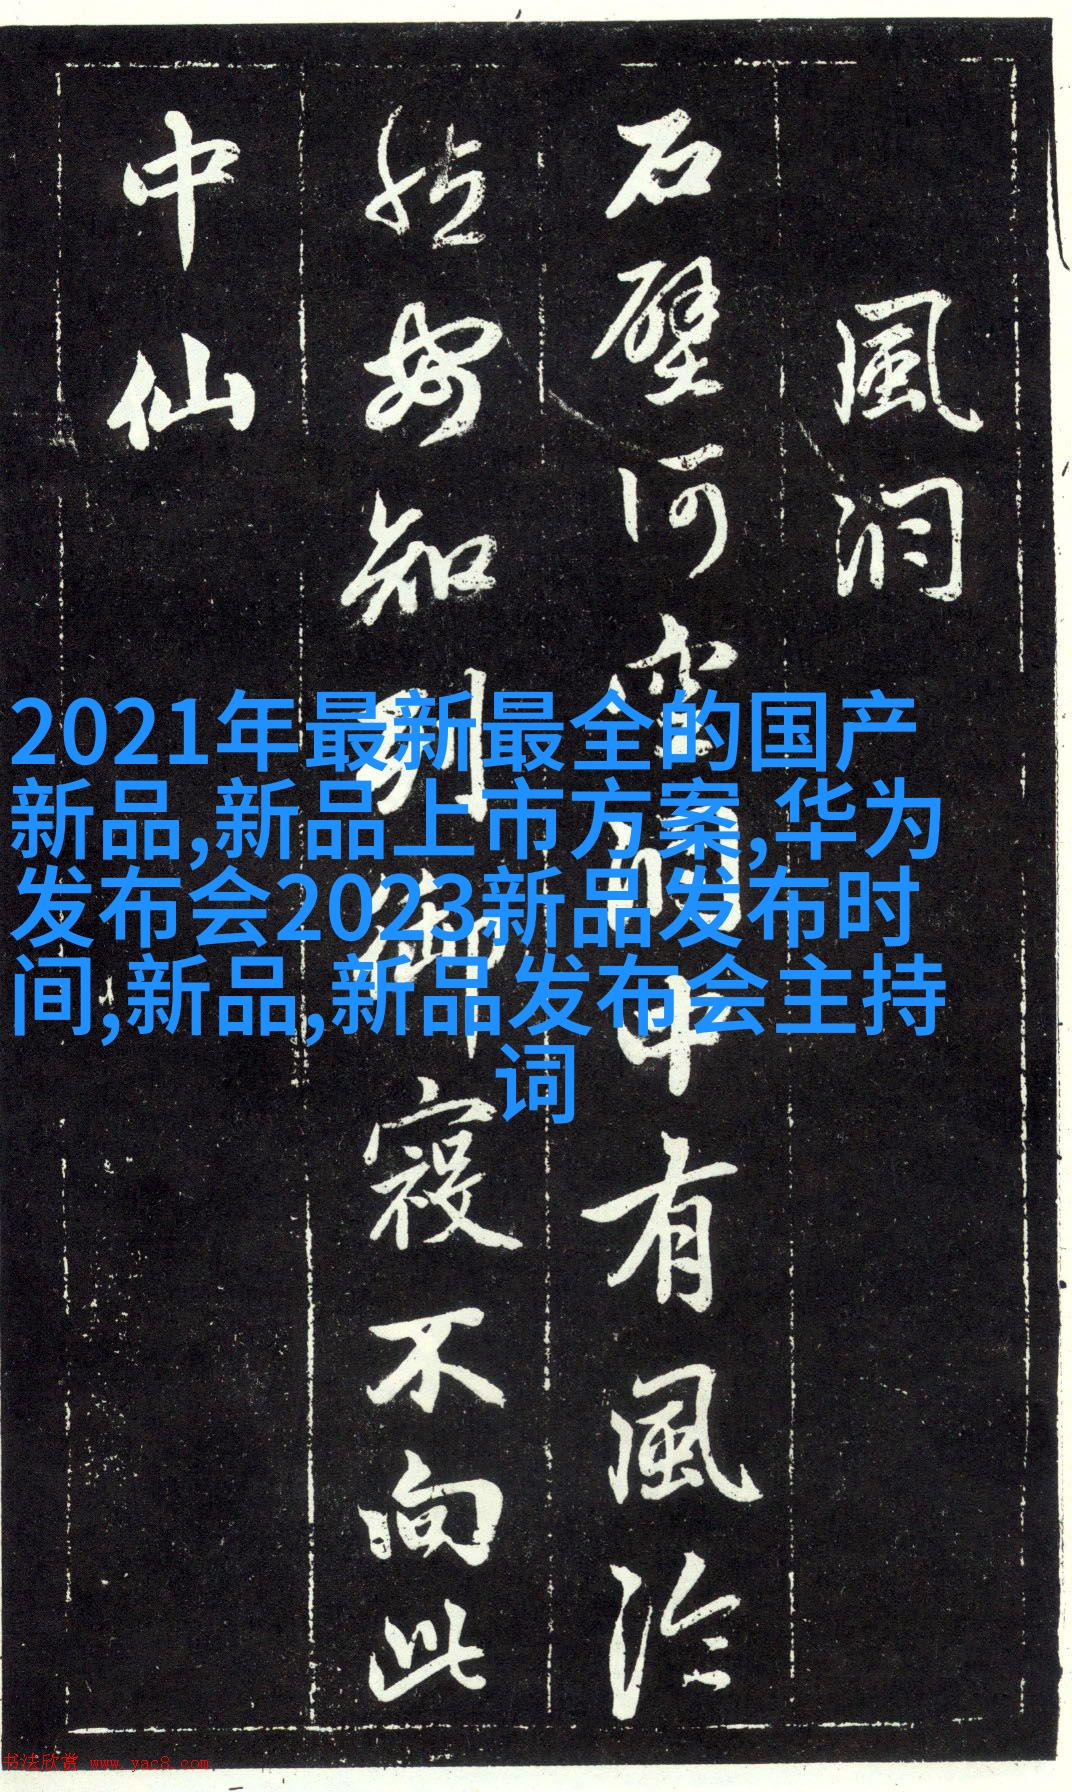 風洞
石壁何空洞中有風泠
然安知列御寇不向此
中仙
2021年最新最全的国产
新品,新品上市方案,华为
发布会2023新品发布时
间,新品,新品发布会主持
词
书法欣赏 www.yac8.com